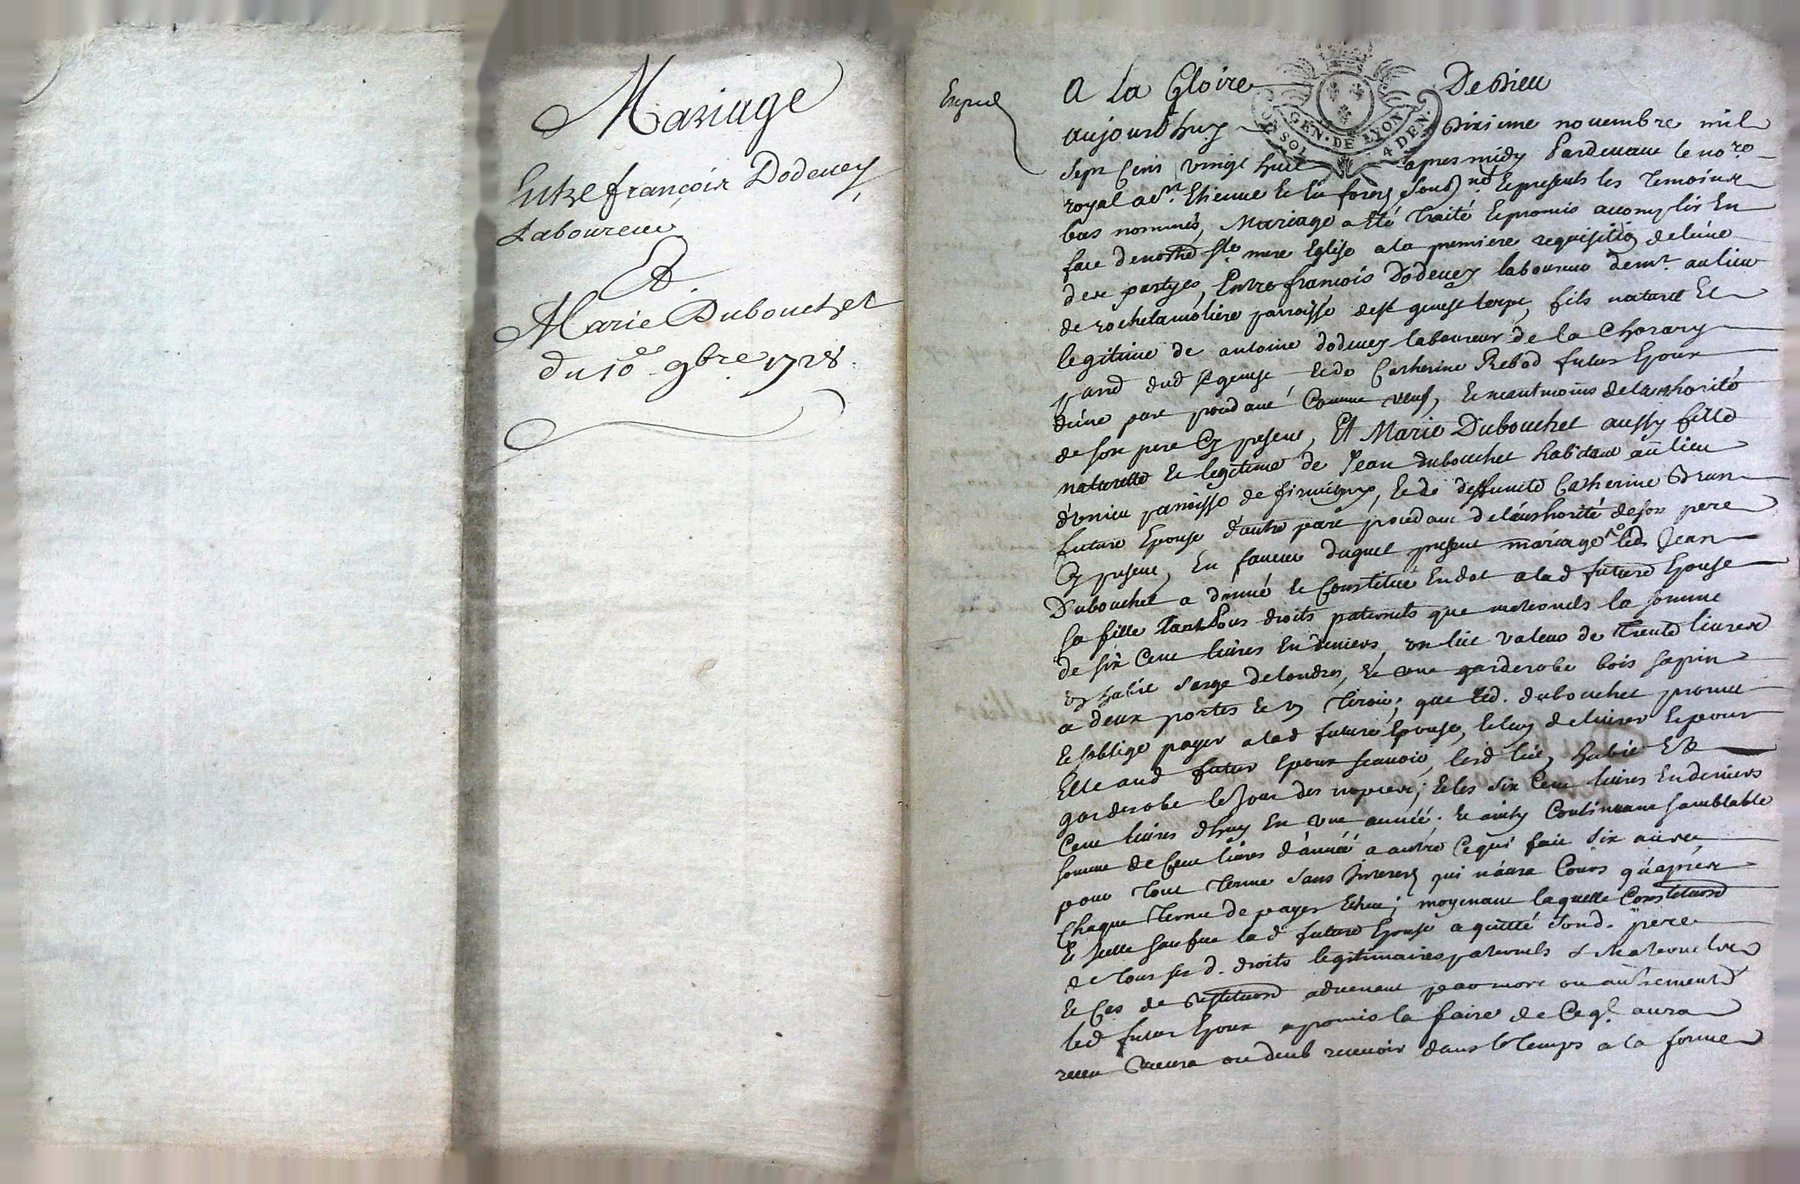 Mariage
Entre françois Dodevey
Laboureur
Et
Marie Dubouchet
du 10e 9bre 1728.
A La Gloire De Dieu
GEN. DE LYON
4 DEN.
aujourd'huy Dixieme novembre mil
sept Cens vingt huit apres midy Pardevant le no.re
royal a St. Etienne les temoins
bas nommés, Mariage a été traité & promis accomplir En
face de nostre Ste. mere Eglise a la premiere requisition de lune
des partyes, Entre françois Dodevey laboureur demt. au lieu
de rochelamoliere parroisse de St genest lerpt, fils naturel Et
legitime de antoine dodevey laboureur de la
dud St genest & de Catherine Rebod futur Epoux
d'une part procedant Comme veuf, & neantmoins de lauthorité
de son pere Cy present, Et Marie Dubouchet aussy fille
naturelle & legitime de Jean dubouchet habitant au lieu
d'unieu parroisse de firminy, & de deffuncte Catherine Brun
future Epouse d'autre part procedant de lauthorité de son pere
Cy present, En faveur duquel present mariage led Jean
Dubouchet a donné & Constitué En dot a lad future Epouse
sa fille droits paternels que maternels la somme
de six Cent livres En deniers, un lit valeur de trente livres
un habit serge de londres, & une garderobe bois sapin
a deux portes & un tiroir; que led. dubouchet promet
& s'oblige payer a lad future Epouse, & pour
Elle aud futur Epoux scavoir, lesd lit, habit Et
garderobe le jour des nopces; & les six Cent livres En deniers
Cent livres d'huy En une année. & ainsy Continuant semblable
somme de Cent livres d'année a autre Ce qui fait six années
pour tout terme sans interest qui n'aura Cours qu'apres
Chaque terme de payer Echeu; moyenant laquelle Constitution
& Icelle sauf lad future Epouse a quitté sond. pere
de tous sesd. droits legitimaires paternels & maternels
& Cas de restitution advenant par mort ou autrement
led futur Epoux a promis la faire de Ce ql. aura
receu ou deub recevoir dans le temps a la forme